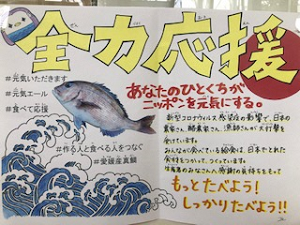 全力応援
ぜん りょく おう えん
#元気いただきます
#元気エール
#食べて応援
あなたのひとくちが
ニッポンを元気にする。
新型コロナウイルス感染症の影響で、日本の
農家さん、酪農家さん、漁師さんが大打撃を
受けています。
みんなが食べている給食は、日本でとれた
食材をつかって、つくっています。
生産者のみなさんへ感謝の気持ちをもって
もっとたべよう!
しっかりたべよう!!
#作る人と食べる人をつなぐ
#愛媛産真鯛